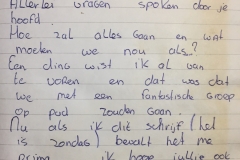 Allerlei vragen spoken door je
hoofd.
Hoe zal alles gaan en wat
moeten we nou als?
Een ding wist ik al van
te voren en dat was dat
we met een fantastische groep
op pad zouden gaan.
Nu als ik dit schrijf (het
is zondag) bevalt het me
prima ik hoop jullie ook